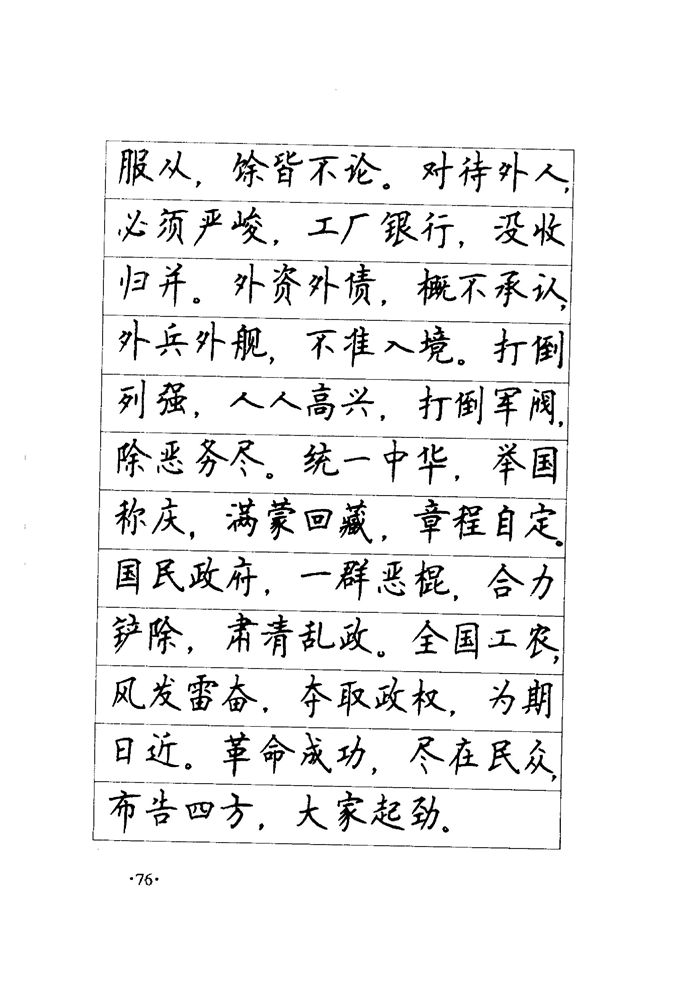 服从，馀皆不论。对待外人，
必须严峻，工厂银行，没收
归并。外资外债，概不承认，
外兵外舰，不准入境。打倒
列强，人人高兴，打倒军阀，
除恶务尽。统一中华，举国
称庆，满蒙回藏，章程自定。
国民政府，一群恶棍，合力
铲除，肃清乱政。全国工农，
风发雷奋，夺取政权，为期
日近。革命成功，尽在民众，
布告四方，大家起劲。
·76·